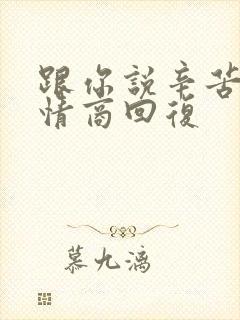 跟你説辛苦
情商回復
慕九漓